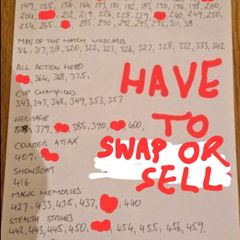 149, 155, 156, 164, 173, 181, 182, 183, 190, 196, 198, 200
204, 212, 219, 226, 228, 229, 240, 244, 249, 250
254, 265, 285, 290, 292, 293, 295, 311, 313
MAN OF THE MATCH WILDCARDS
316, 317, 318, 320, 322, 323, 326, 327, 328, 332, 333, 342
ALL ACTION HERO
364, 368, 375,
CUP CHAMPIONS
343, 347, 348, 349, 353, 357
HERITAGE
379, 385, 390, 400,
COUNTER ATTAX
407,
SHOWBOAT
416
MAGIC MEMORIES
427, 433, 434, 437, 440
STEALTH STRIKES
442, 443, 445, 450, 454, 455, 456, 459,
HAVE
TO
SWAP OR
SELL